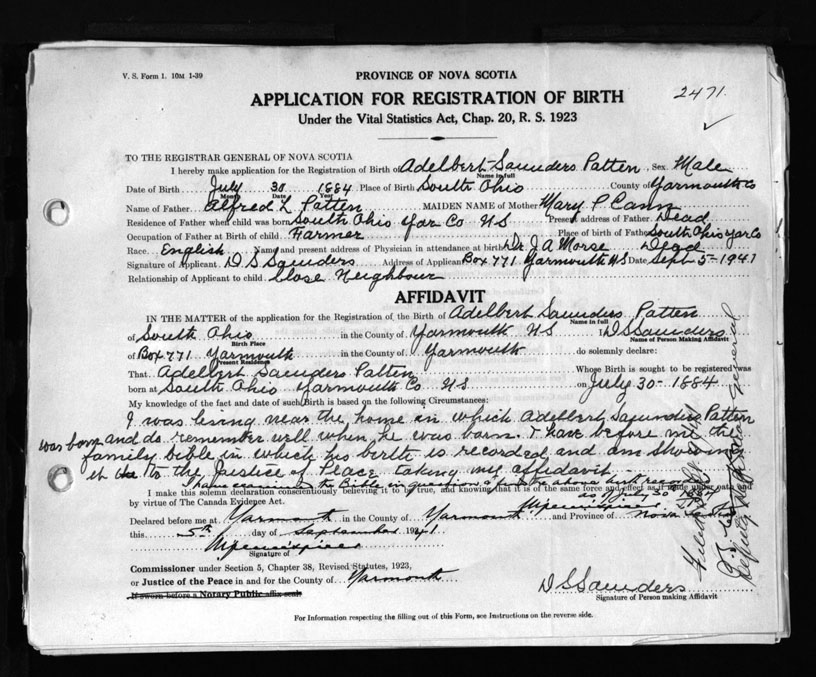 V. S. Form 1. 10M 1-39
PROVINCE OF NOVA SCOTIA
2471.
APPLICATION FOR REGISTRATION OF BIRTH
Under the Vital Statistics Act, Chap. 20, R. S. 1923
TO THE REGISTRAR GENERAL OF NOVA SCOTIA
I hereby make application for the Registration of Birth of Adelbert Saunders Patten Sex. Male
Name in full
Date of Birth July 30 1884 Place of Birth South Ohio County of Yarmouth Co
Month Date Year
Name of Father Alfred L Patten MAIDEN NAME of Mother Mary P Cann
Residence of Father when child was born South Ohio Yar Co NS Present address of Father Dead
Occupation of Father at Birth of child Farmer Place of birth of Father South Ohio Yar Co
Race English Name and present address of Physician in attendance at birth Dr J A Morse Dead
Signature of Applicant D S Saunders Address of Applicant Box 771 Yarmouth NS Date Sept 5-1941
Relationship of Applicant to child Close Neighbour
AFFIDAVIT
IN THE MATTER of the application for the Registration of the Birth of Adelbert Saunders Patten
Name in full
of South Ohio in the County of Yarmouth NS I D S Saunders
Birth Place Name of Person Making Affidavit
of Box 771 Yarmouth in the County of Yarmouth do solemnly declare:
Present Residence
That Adelbert Saunders Patten Whose Birth is sought to be registered was
born at South Ohio Yarmouth Co NS on July 30-1884
My knowledge of the fact and date of such Birth is based on the following Circumstances:
I was living near the home in which Adelbert Saunders Patten
was born and do remember well when he was born. I have before me the
family bible in which his birth is recorded and am showing
it to the Justice of Peace taking my affidavit.
I have examined the Bible in question & find the above birth recorded
as July 30 1884
I make this solemn declaration conscientiously believing it to be true, and knowing that it is of the same force and effect as if made under oath and
by virtue of The Canada Evidence Act.
Declared before me at Yarmouth in the County of Yarmouth and Province of Nova Scotia
this 5th day of September 1941
Signature of
Commissioner under Section 5, Chapter 38, Revised Statutes, 1923,
or Justice of the Peace in and for the County of Yarmouth
If sworn before a Notary Public affix seal
D S Saunders
Signature of Person making Affidavit
For Information respecting the filling out of this Form, see Instructions on the reverse side.
Deputy Registrar General